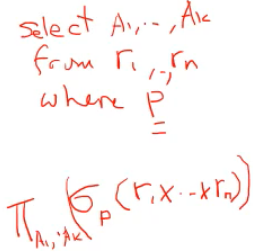 select A₁,..., Aₖ
from r₁,..,rₙ
where P
Π A₁,..Aₖ (σₚ (r₁x...xrₙ))